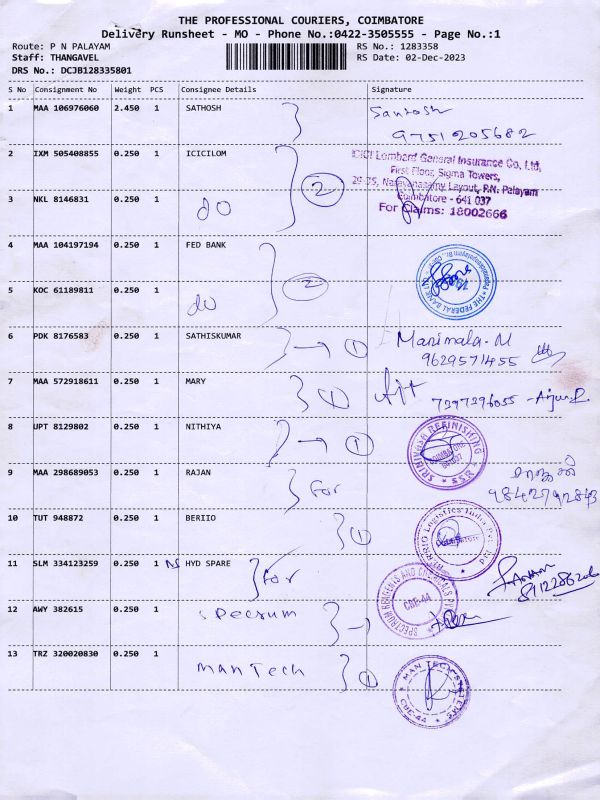 THE PROFESSIONAL COURIERS, COIMBATORE
Delivery Runsheet - MO - Phone No.:0422-3505555 - Page No.:1
Route: P N PALAYAM
Staff: THANGAVEL
DRS No.: DCJB128335801
RS No.: 1283358
RS Date: 02-Dec-2023
S No Consignment No Weight PCS Consignee Details Signature
1 MAA 106976060 2.450 1 SATHOSH Santosh
9751205682
2 IXM 505408855 0.250 1 ICICILOM
ICICI Lombard General Insurance Co. Ltd,
First Floor, Sigma Towers,
Narayanasamy Layout, P.N. Palayam
Coimbatore - 641 037
For Claims: 18002666
3 NKL 8146831 0.250 1 do 2
4 MAA 104197194 0.250 1 FED BANK
THE FEDERAL BANK
5 KOC 61189811 0.250 1 do 2
6 PDK 8176583 0.250 1 SATHISKUMAR 1 Manimala-M
9629571455
7 MAA 572918611 0.250 1 MARY 1
7397396055 - Arjun.R
8 UPT 8129802 0.250 1 NITHIYA 1
SRINIVASA REFINISHING
SSR
9 MAA 298689053 0.250 1 RAJAN for
9842792843
10 TUT 948872 0.250 1 BERIIO 1
BERRIO Logistics India Pvt. Ltd
11 SLM 334123259 0.250 1 NS HYD SPARE for
12 AWY 382615 0.250 1 Specrum 1
SPECTRUM REAGENTS AND CHEMICALS
CBE-44
13 TRZ 320020830 0.250 1 manTech 1
MAN TECH SYSTEMS
CBE-44